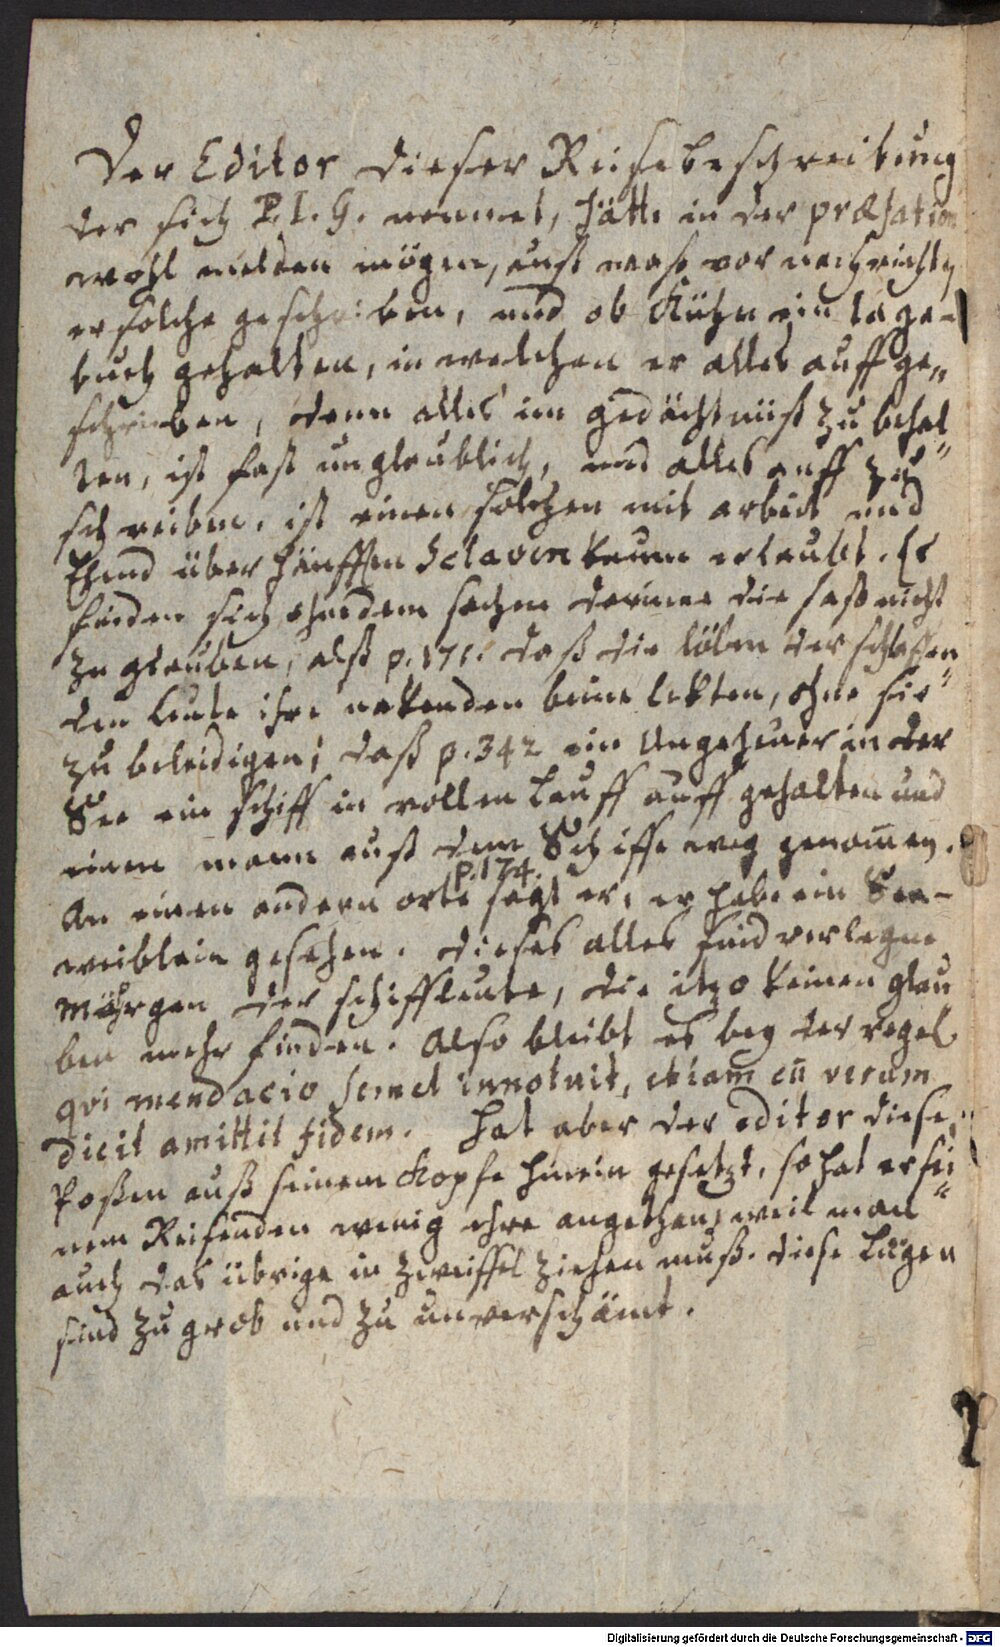 Der Editor dieser Reisebeschreibung
der sich P. I. G. nennet, hätte in der præfation
wohl melden mögen, auß was vor nachrichten
er solche geschrieben, und ob Kühn ein tage-
buch gehalten, in welchen er alles auff ge„
schrieben, denn alles im gedächtnüß zu behal„
ten, ist fast unglaublich, und alles auff zu
schreiben, ist einen solchen mit arbeit und
Elend über häufften Sclaven kaum erlaubt. Es
finden sich ohndem sachen darinne die fast nicht
zu glauben, alß p. 171. daß die löben der schlaffen„
den leute ihre nakenden beine lekten, ohne sie
zu beleidigen; daß p. 342 ein Ungeheuer in der
See ein schiff in vollen lauff auff gehalten und
einen mann auß dem Schiffe weg genom̄en.
p. 174.
An einen andern orte sagt er, er habe ein See-
weiblein gesehen. Dieses alles sind verlegne
Mährgen der schiffleute, die itzo keinen glau
ben mehr finden. Also bleibt es bey der regel
qvi mendacio semel innotuit, etiam cū verum
dicit amittit fidem. Hat aber der editor diese
Poßen auß seinem Kopfe hinein gesetzt, so hat er sei„
nem Reisenden wenig ehre angethan, weil man
auch das übrige in zweiffel ziehen muß. diese lügen
sind zu grob und zu unverschämt.
Digitalisierung gefördert durch die Deutsche Forschungsgemeinschaft - DFG